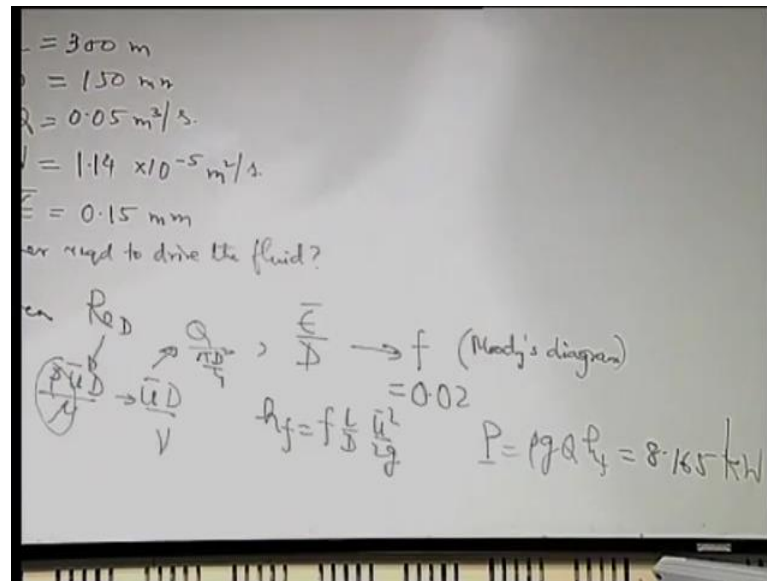 = 300 m
= 150 mm
= 0.05 m³/s.
= 1.14 × 10⁻⁵ m²/s.
ε̄ = 0.15 mm
reqd to drive the fluid?
Re_D
ρūD/μ → ūD/ν → Q/(πD²/4) , ε̄/D → f (Moody's diagram)
= 0.02
h_f = f L/D ū²/2g
P = ρgQh_f = 8.165 kW